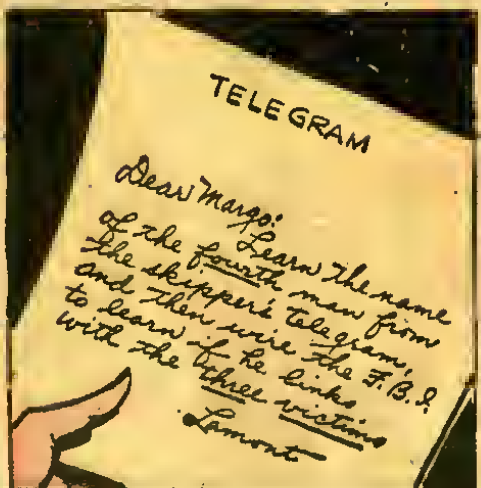 TELEGRAM
Dear Margo:
Learn the name
of the fourth man from
the skipper's telegram,
and then wire the F.B.I.
to learn if he links
with the three victims
Lamont